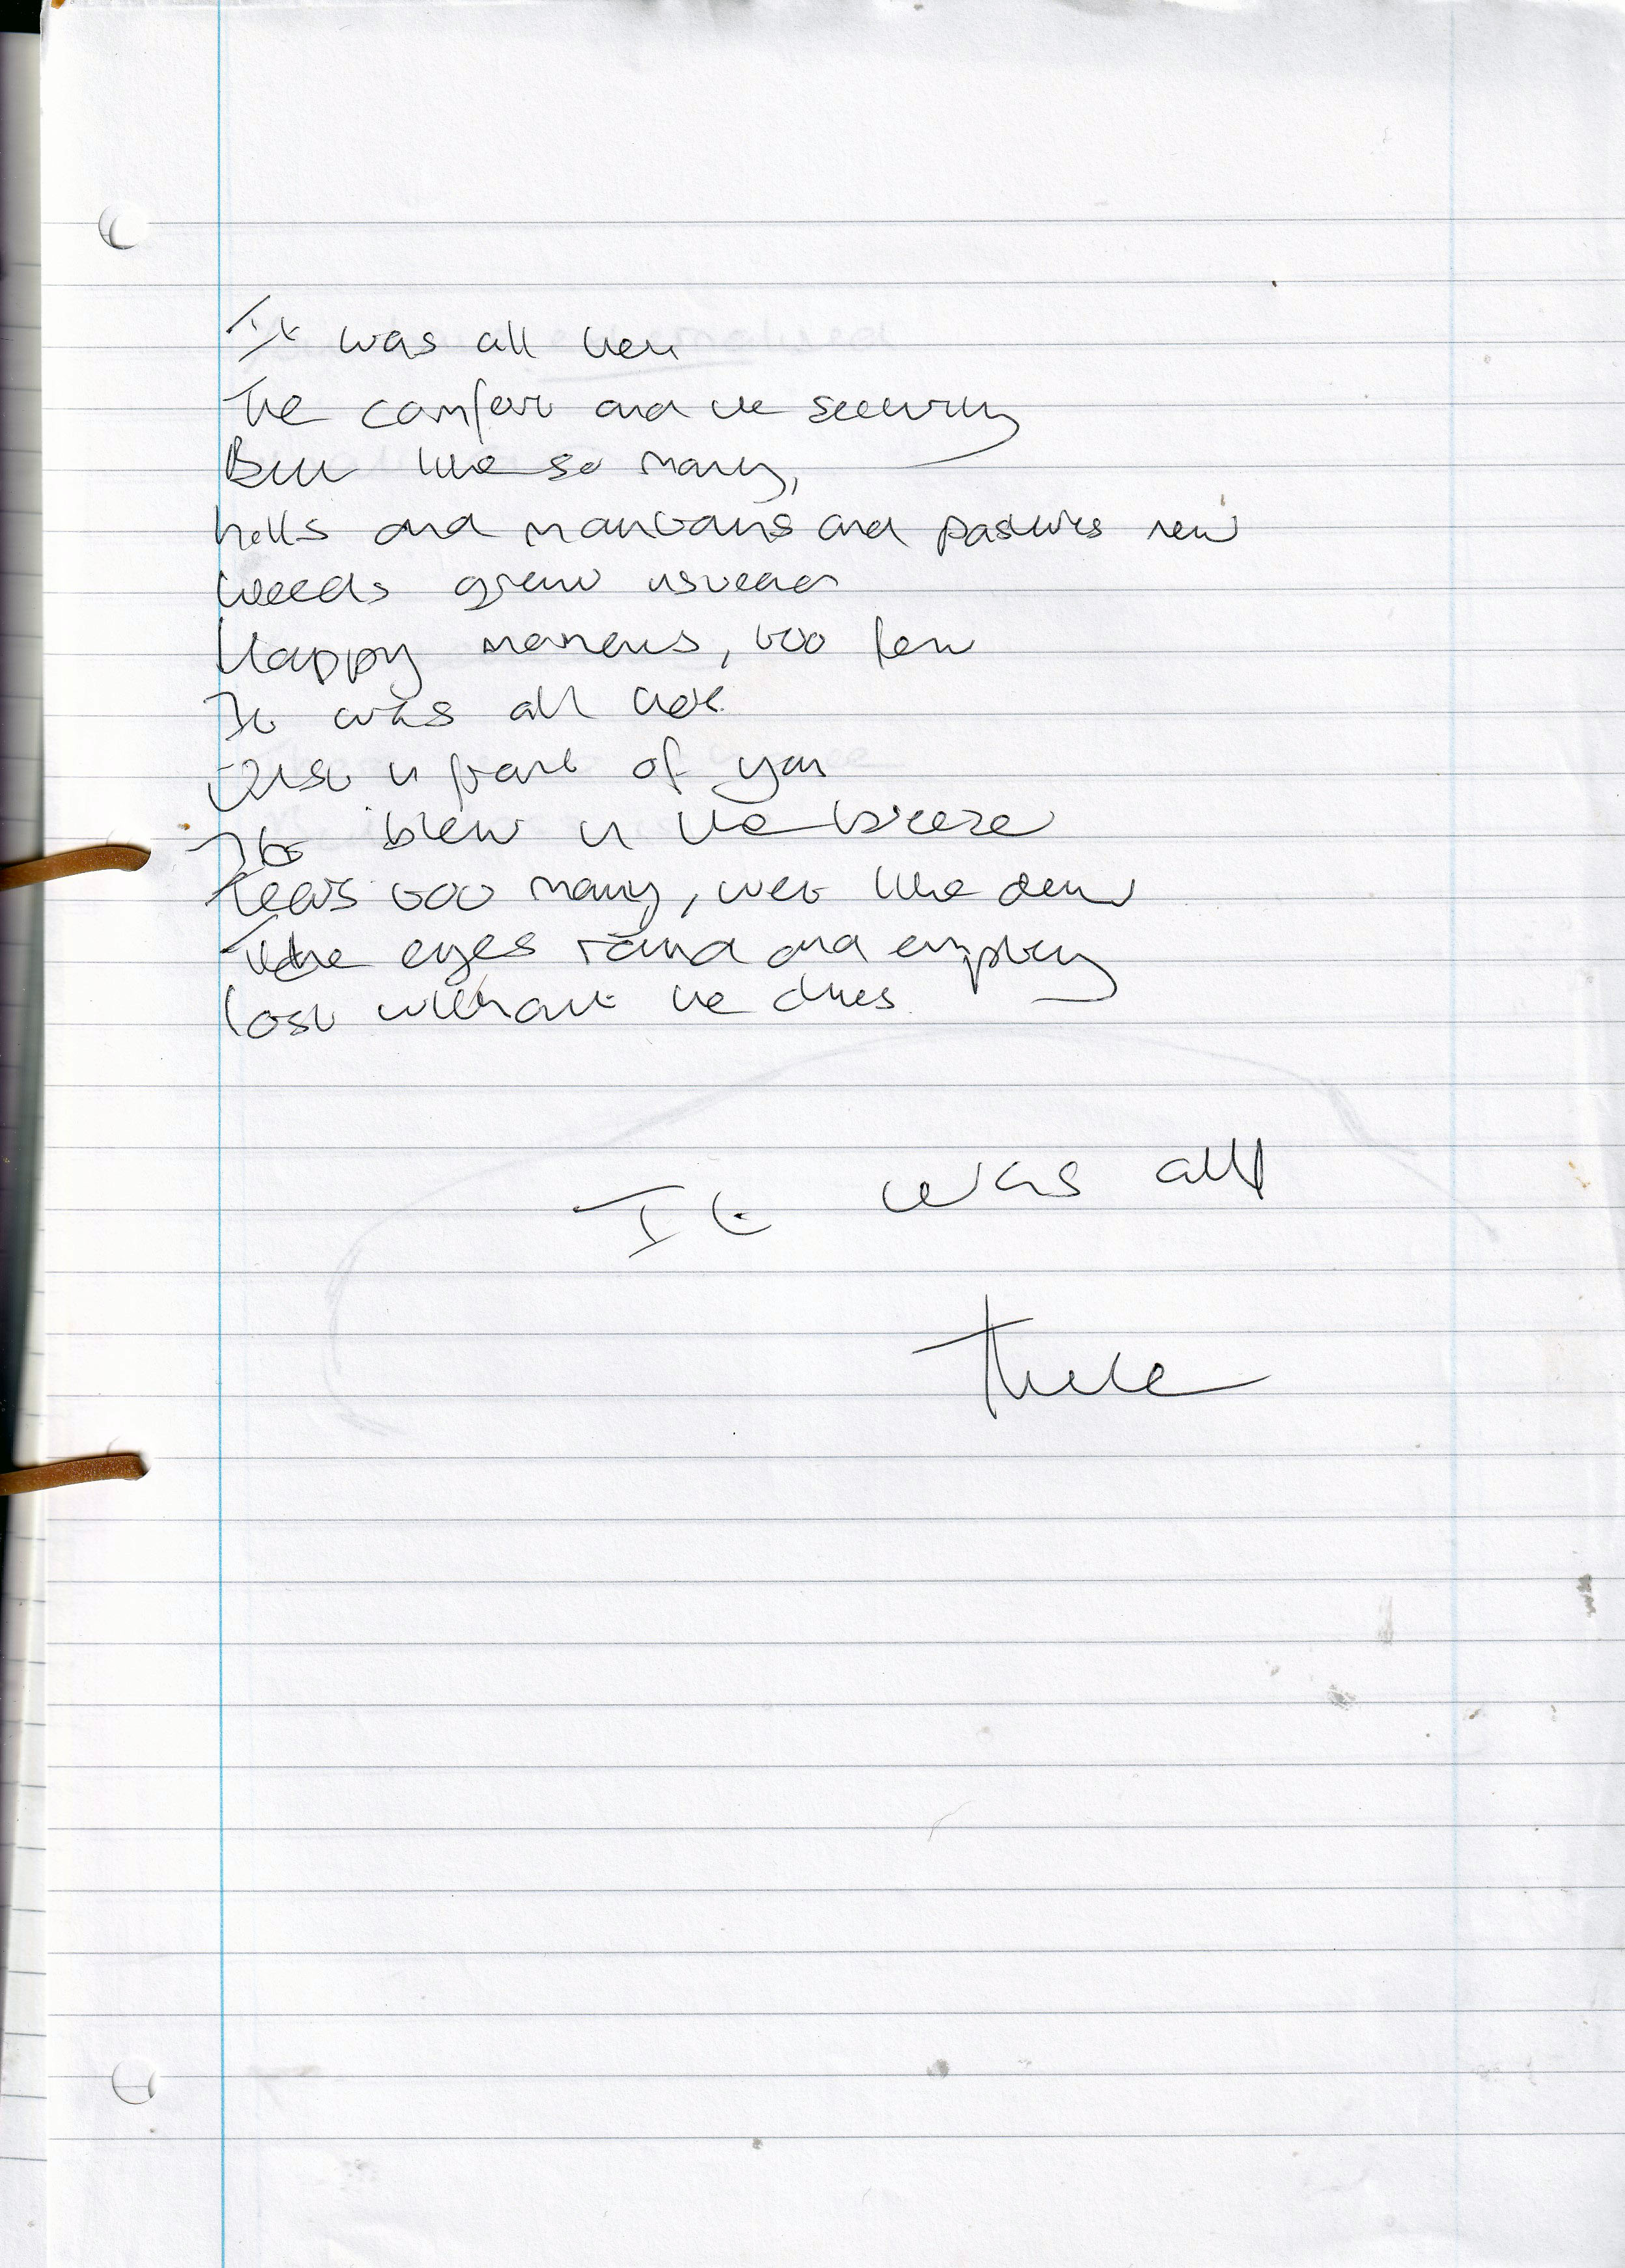 It was all there
The comfort and the security
But like so many,
hills and mountains and pastures new
weeds grew instead
Happy moments, too few
It was all there
Just in front of you
It blew in the breeze
Tears too many, wet like dew
The eyes round and empty
lost without the clues
It was all
there